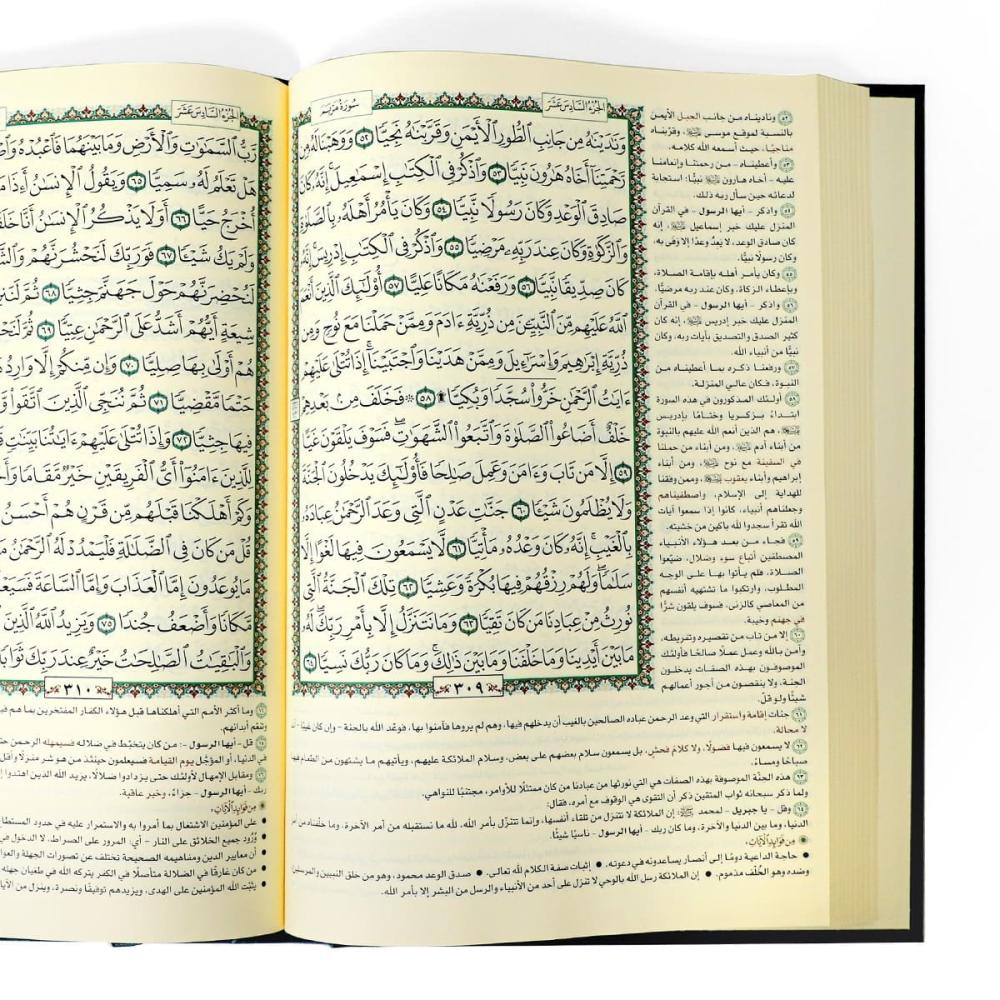 سُورَةُ مَرْيَم
الجُزْءُ السَّادِسَ عَشَرَ
وَنَٰدَيْنَٰهُ مِن جَانِبِ ٱلطُّورِ ٱلْأَيْمَنِ وَقَرَّبْنَٰهُ نَجِيًّا ٥٢ وَوَهَبْنَا لَهُۥ مِن
رَّحْمَتِنَآ أَخَاهُ هَٰرُونَ نَبِيًّا ٥٣ وَٱذْكُرْ فِى ٱلْكِتَٰبِ إِسْمَٰعِيلَ إِنَّهُۥ كَانَ
صَادِقَ ٱلْوَعْدِ وَكَانَ رَسُولًا نَّبِيًّا ٥٤ وَكَانَ يَأْمُرُ أَهْلَهُۥ بِٱلصَّلَوٰةِ
وَٱلزَّكَوٰةِ وَكَانَ عِندَ رَبِّهِۦ مَرْضِيًّا ٥٥ وَٱذْكُرْ فِى ٱلْكِتَٰبِ إِدْرِيسَ إِنَّهُۥ
كَانَ صِدِّيقًا نَّبِيًّا ٥٦ وَرَفَعْنَٰهُ مَكَانًا عَلِيًّا ٥٧ أُو۟لَٰٓئِكَ ٱلَّذِينَ أَنْعَمَ
ٱللَّهُ عَلَيْهِم مِّنَ ٱلنَّبِيِّـۧنَ مِن ذُرِّيَّةِ ءَادَمَ وَمِمَّنْ حَمَلْنَا مَعَ نُوحٍ وَمِن
ذُرِّيَّةِ إِبْرَٰهِيمَ وَإِسْرَٰٓءِيلَ وَمِمَّنْ هَدَيْنَا وَٱجْتَبَيْنَآ إِذَا تُتْلَىٰ عَلَيْهِمْ
ءَايَٰتُ ٱلرَّحْمَٰنِ خَرُّوا۟ سُجَّدًا وَبُكِيًّا ۩ ٥٨ ۞ فَخَلَفَ مِنۢ بَعْدِهِمْ
خَلْفٌ أَضَاعُوا۟ ٱلصَّلَوٰةَ وَٱتَّبَعُوا۟ ٱلشَّهَوَٰتِ فَسَوْفَ يَلْقَوْنَ غَيًّا
٥٩ إِلَّا مَن تَابَ وَءَامَنَ وَعَمِلَ صَٰلِحًا فَأُو۟لَٰٓئِكَ يَدْخُلُونَ ٱلْجَنَّةَ
وَلَا يُظْلَمُونَ شَيْـًٔا ٦٠ جَنَّٰتِ عَدْنٍ ٱلَّتِى وَعَدَ ٱلرَّحْمَٰنُ عِبَادَهُۥ
بِٱلْغَيْبِ إِنَّهُۥ كَانَ وَعْدُهُۥ مَأْتِيًّا ٦١ لَّا يَسْمَعُونَ فِيهَا لَغْوًا إِلَّا
سَلَٰمًا وَلَهُمْ رِزْقُهُمْ فِيهَا بُكْرَةً وَعَشِيًّا ٦٢ تِلْكَ ٱلْجَنَّةُ ٱلَّتِى
نُورِثُ مِنْ عِبَادِنَا مَن كَانَ تَقِيًّا ٦٣ وَمَا نَتَنَزَّلُ إِلَّا بِأَمْرِ رَبِّكَ لَهُۥ
مَا بَيْنَ أَيْدِينَا وَمَا خَلْفَنَا وَمَا بَيْنَ ذَٰلِكَ وَمَا كَانَ رَبُّكَ نَسِيًّا ٦٤
٣٠٩
٥٢ وناديناه من جانب الجبل الأيمن
بالنسبة لموقع موسى ﷺ، وقربناه
مناجيًا، حيث أسمعه الله كلامه.
٥٣ وأعطيناه - من رحمتنا وإنعامنا
عليه - أخاه هارون ﷺ نبيًّا؛ استجابة
لدعائه حين سأل ربه ذلك.
٥٤ واذكر - أيها الرسول - في القرآن
المنزل عليك خبر إسماعيل ﷺ، إنه
كان صادق الوعد، لا يعد وعدًا إلا وفى به،
وكان رسولًا نبيًّا.
٥٥ وكان يأمر أهله بإقامة الصلاة،
وبإعطاء الزكاة، وكان عند ربه مرضيًّا.
٥٦ واذكر - أيها الرسول - في القرآن
المنزل عليك خبر إدريس ﷺ، إنه كان
كثير الصدق والتصديق بآيات ربه، وكان
نبيًّا من أنبياء الله.
٥٧ ورفعنا ذكره بما أعطيناه من
النبوة، فكان عالي المنزلة.
٥٨ أولئك المذكورون في هذه السورة
ابتداءً بزكريا وختامًا بإدريس
ﷺ، هم الذين أنعم الله عليهم بالنبوة
من أبناء آدم ﷺ، ومن أبناء من حملنا
في السفينة مع نوح ﷺ، ومن أبناء
إبراهيم وأبناء يعقوب ﷺ، وممن وفقنا
للهداية إلى الإسلام، واصطفيناهم
وجعلناهم أنبياء، كانوا إذا سمعوا آيات
الله تقرأ سجدوا لله باكين من خشيته.
٥٩ فجاء من بعد هؤلاء الأنبياء
المصطفين أتباع سوء وضلال، ضيّعوا
الصلاة، فلم يأتوا بها على الوجه
المطلوب، وارتكبوا ما تشتهيه أنفسهم
من المعاصي كالزنى، فسوف يلقون شرًّا
في جهنم وخيبة.
٦٠ إلا من تاب من تقصيره وتفريطه،
وآمن بالله وعمل عملًا صالحًا فأولئك
الموصوفون بهذه الصفات يدخلون
الجنة، ولا ينقصون من أجور أعمالهم
شيئًا ولو قلّ.
٦١ جنات إقامة واستقرار التي وعد الرحمن عباده الصالحين بالغيب أن يدخلهم فيها، وهم لم يروها فآمنوا بها، فوعْد الله بالجنة - وإن كان غيبًا - آتٍ
لا محالة.
٦٢ لا يسمعون فيها فضولًا، ولا كلام فحش، بل يسمعون سلام بعضهم على بعض، وسلام الملائكة عليهم، ويأتيهم ما يشتهون من الطعام فيها
صباحًا ومساءً.
٦٣ هذه الجنّة الموصوفة بهذه الصفات هي التي نورثها من عبادنا من كان ممتثلًا للأوامر، مجتنبًا للنواهي.
ولما ذكر سبحانه ثواب المتقين ذكر أن التقوى هي الوقوف مع أمره، فقال:
٦٤ وقل - يا جبريل - لمحمد ﷺ: إن الملائكة لا تتنزل من تلقاء أنفسها، وإنما تتنزّل بأمر الله، لله ما نستقبله من أمر الآخرة، وما خلّفناه من أمر
الدنيا، وما بين الدنيا والآخرة، وما كان ربك - أيها الرسول - ناسيًا شيئًا.
مِن فَوَائِدِ الآيَاتِ:
• حاجة الداعية دومًا إلى أنصار يساعدونه في دعوته. • إثبات صفة الكلام لله تعالى. • صدق الوعد محمود، وهو من خلق النبيين والمرسلين،
وضده وهو الخُلْف مذموم. • إن الملائكة رسل الله بالوحي لا تنزل على أحد من الأنبياء والرسل من البشر إلا بأمر الله.
الجُزْءُ السَّادِسَ عَشَرَ
رَّبُّ ٱلسَّمَٰوَٰتِ وَٱلْأَرْضِ وَمَا بَيْنَهُمَا فَٱعْبُدْهُ
هَلْ تَعْلَمُ لَهُۥ سَمِيًّا ٦٥ وَيَقُولُ ٱلْإِنسَٰنُ أَءِذَا مَا
أُخْرَجُ حَيًّا ٦٦ أَوَلَا يَذْكُرُ ٱلْإِنسَٰنُ أَنَّا
وَلَمْ يَكُ شَيْـًٔا ٦٧ فَوَرَبِّكَ لَنَحْشُرَنَّهُمْ
لَنُحْضِرَنَّهُمْ حَوْلَ جَهَنَّمَ جِثِيًّا ٦٨ ثُمَّ
شِيعَةٍ أَيُّهُمْ أَشَدُّ عَلَى ٱلرَّحْمَٰنِ عِتِيًّا ٦٩ ثُمَّ
هُمْ أَوْلَىٰ بِهَا صِلِيًّا ٧٠ وَإِن مِّنكُمْ إِلَّا وَارِدُهَا
حَتْمًا مَّقْضِيًّا ٧١ ثُمَّ نُنَجِّى ٱلَّذِينَ ٱتَّقَوا۟
فِيهَا جِثِيًّا ٧٢ وَإِذَا تُتْلَىٰ عَلَيْهِمْ ءَايَٰتُنَا بَيِّنَٰتٍ
لِلَّذِينَ ءَامَنُوٓا۟ أَىُّ ٱلْفَرِيقَيْنِ خَيْرٌ مَّقَامًا
وَكَمْ أَهْلَكْنَا قَبْلَهُم مِّن قَرْنٍ هُمْ أَحْسَنُ
قُلْ مَن كَانَ فِى ٱلضَّلَٰلَةِ فَلْيَمْدُدْ لَهُ ٱلرَّحْمَٰنُ
مَا يُوعَدُونَ إِمَّا ٱلْعَذَابَ وَإِمَّا ٱلسَّاعَةَ
مَّكَانًا وَأَضْعَفُ جُندًا ٧٥ وَيَزِيدُ ٱللَّهُ ٱلَّذِينَ
وَٱلْبَٰقِيَٰتُ ٱلصَّٰلِحَٰتُ خَيْرٌ عِندَ رَبِّكَ ثَوَابًا
٣١٠
وما أكثر الأمم التي أهلكناها قبل هؤلاء الكفار المفتخرين بما هم
وتنعّم أبدانهم.
٧٥ قل - أيها الرسول -: من كان يتخبّط في ضلاله فسيمهله الرحمن
في الدنيا، أو المؤجَّل يوم القيامة فسيعلمون حينئذ من هو شر منزلًا وأقل
٧٦ ومقابل الإمهال لأولئك حتى يزدادوا ضلالًا، يزيد الله الذين اهتدوا
ربك - أيها الرسول - جزاءً، وخير عاقبة.
مِن فَوَائِدِ الآيَاتِ:
• على المؤمنين الاشتغال بما أمروا به والاستمرار عليه في حدود المستطاع
• وُرُود جميع الخلائق على النار - أي: المرور على الصراط، لا الدخول في
• أن معايير الدين ومفاهيمه الصحيحة تختلف عن تصورات الجهلة والعوام
• من كان غارقًا في الضلالة متأصلًا في الكفر يتركه الله في طغيان جهله
• يثبّت الله المؤمنين على الهدى، ويزيدهم توفيقًا ونصرة، وينزل من الآيات